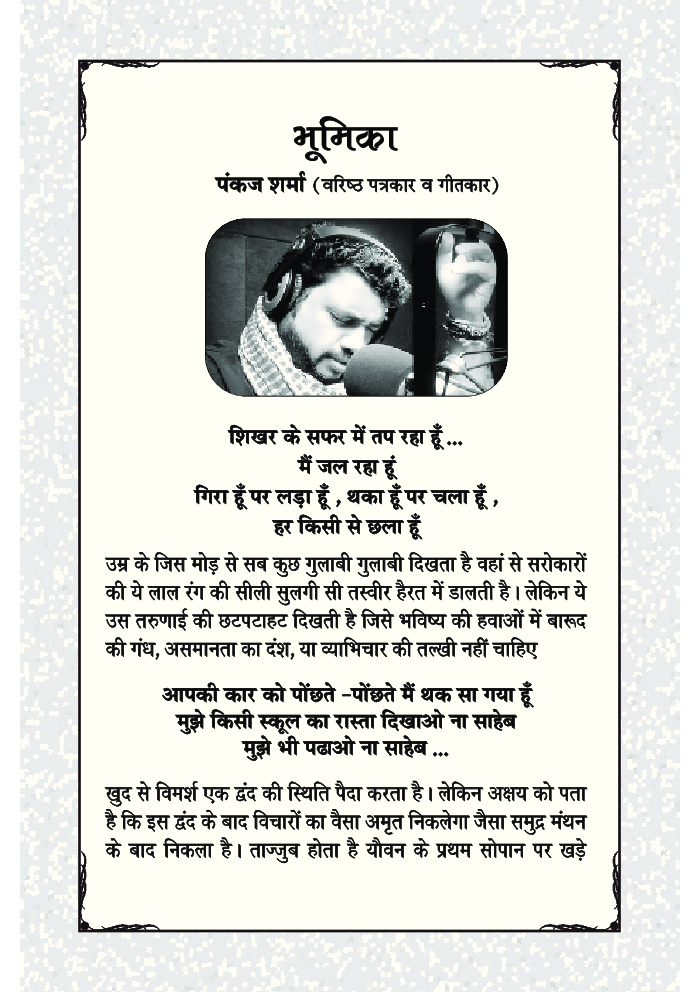 भूमिका
पंकज शर्मा (वरिष्ठ पत्रकार व गीतकार)
शिखर के सफर में तप रहा हूँ ...
मैं जल रहा हूं
गिरा हूँ पर लड़ा हूँ , थका हूँ पर चला हूँ ,
हर किसी से छला हूँ
उम्र के जिस मोड़ से सब कुछ गुलाबी गुलाबी दिखता है वहां से सरोकारों
की ये लाल रंग की सीली सुलगी सी तस्वीर हैरत में डालती है। लेकिन ये
उस तरुणाई की छटपटाहट दिखती है जिसे भविष्य की हवाओं में बारूद
की गंध, असमानता का दंश, या व्याभिचार की तल्खी नहीं चाहिए
आपकी कार को पोंछते -पोंछते मैं थक सा गया हूँ
मुझे किसी स्कूल का रास्ता दिखाओ ना साहेब
मुझे भी पढाओ ना साहेब ...
खुद से विमर्श एक द्वंद की स्थिति पैदा करता है। लेकिन अक्षय को पता
है कि इस द्वंद के बाद विचारों का वैसा अमृत निकलेगा जैसा समुद्र मंथन
के बाद निकला है। ताज्जुब होता है यौवन के प्रथम सोपान पर खड़े